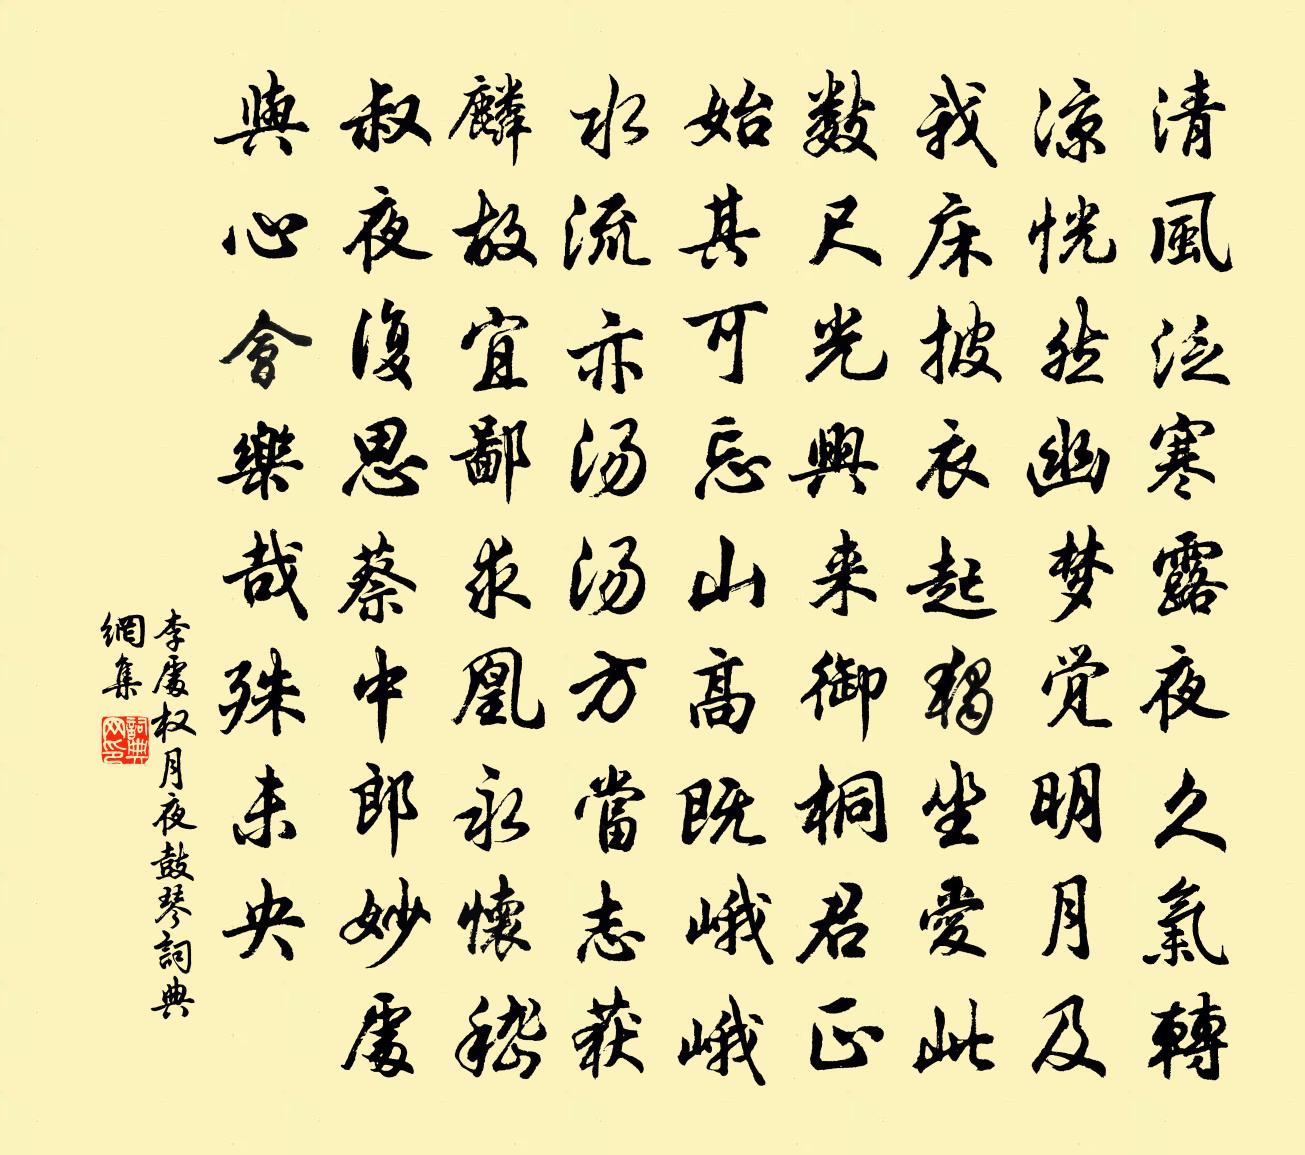 清風泛寒露夜久氣轉
涼恍然幽梦觉明月及
我床披衣起獨坐愛此
数尺光興来御桐君正
始其可忘山高既峨峨
水流亦汤汤方當志获
麟故宜鄙求凰永懷嵇
叔夜復思蔡中郎妙處
與心會樂哉殊未央
李處权月夜鼓琴詞典
網集
詞典
网印